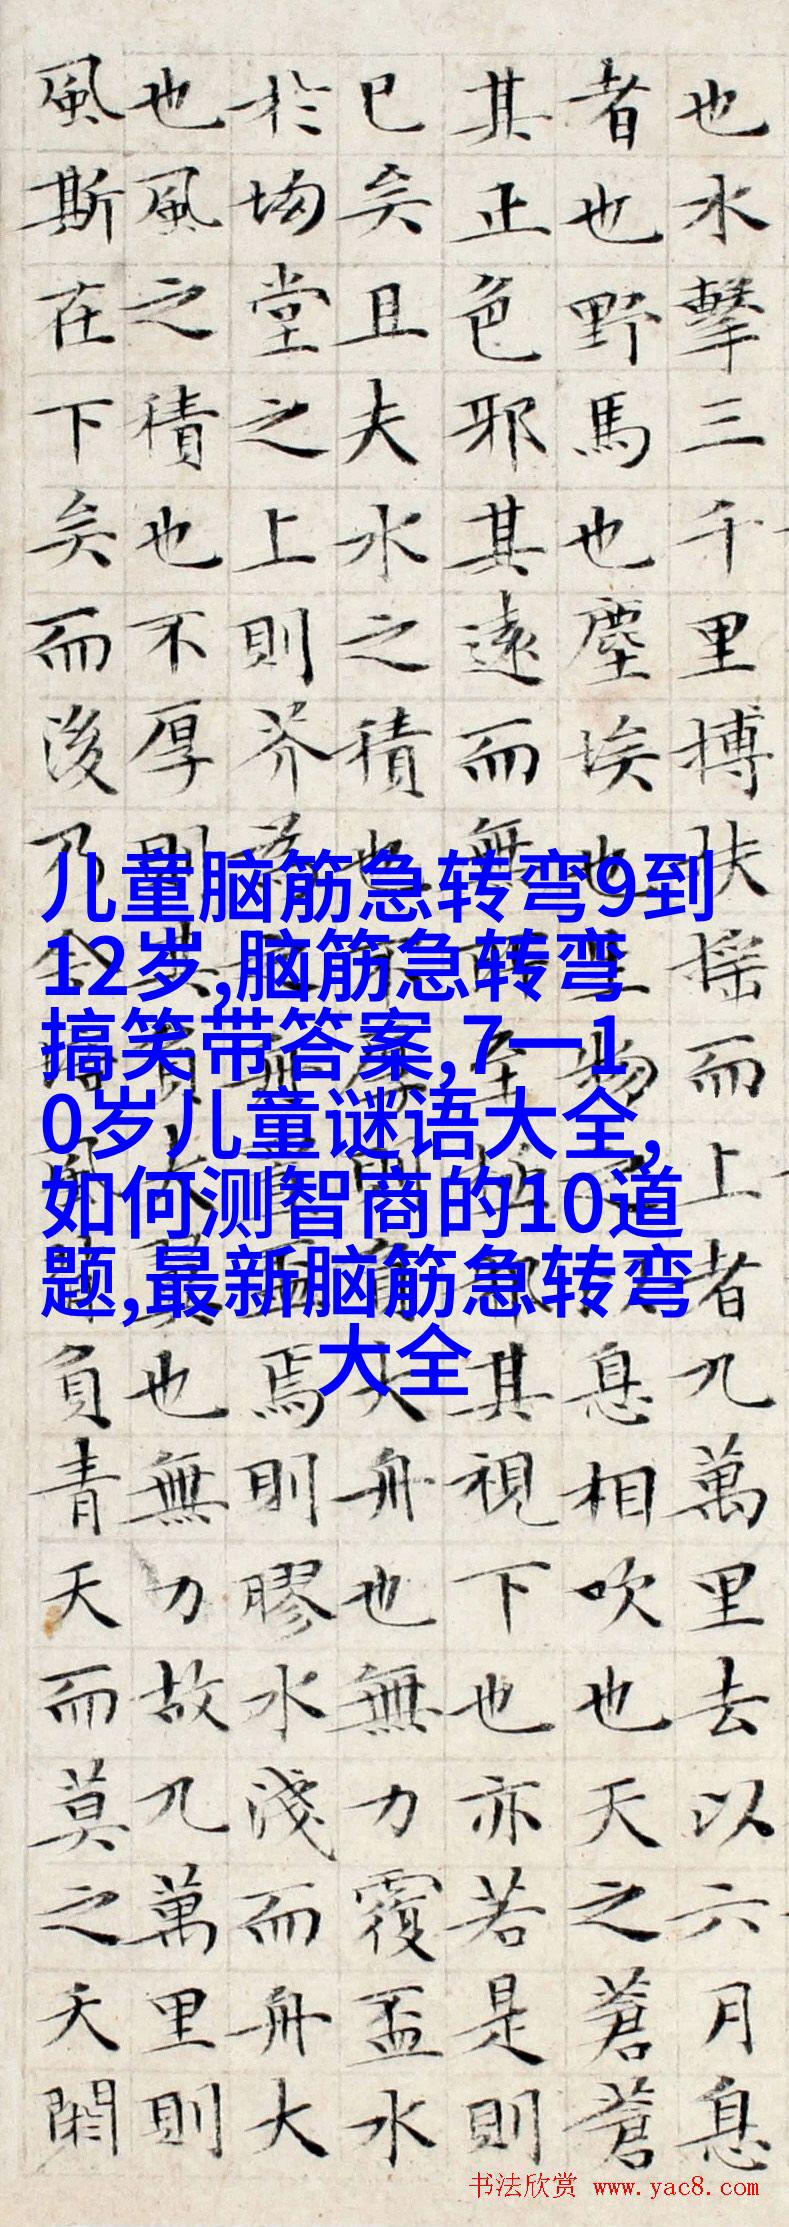 也水擊三千里搏扶摇而上者九萬里去以六月息
者也野馬也塵埃也生物息相吹也天之蒼蒼
其正色邪其遠而無至其視下也亦若是則
已矣且夫水之積也不厚大舟也無力覆盃水
於坳堂之上則芥為焉則膠水淺而舟大
也風之積也不厚則其負大也無力故九萬里則
風斯在下矣而後乃今負青天而莫之夭閼
儿童脑筋急转弯9到
12岁,脑筋急转弯
搞笑带答案,7一1
0岁儿童谜语大全,
如何测智商的10道
题,最新脑筋急转弯
大全
书法欣赏 www.yac8.com